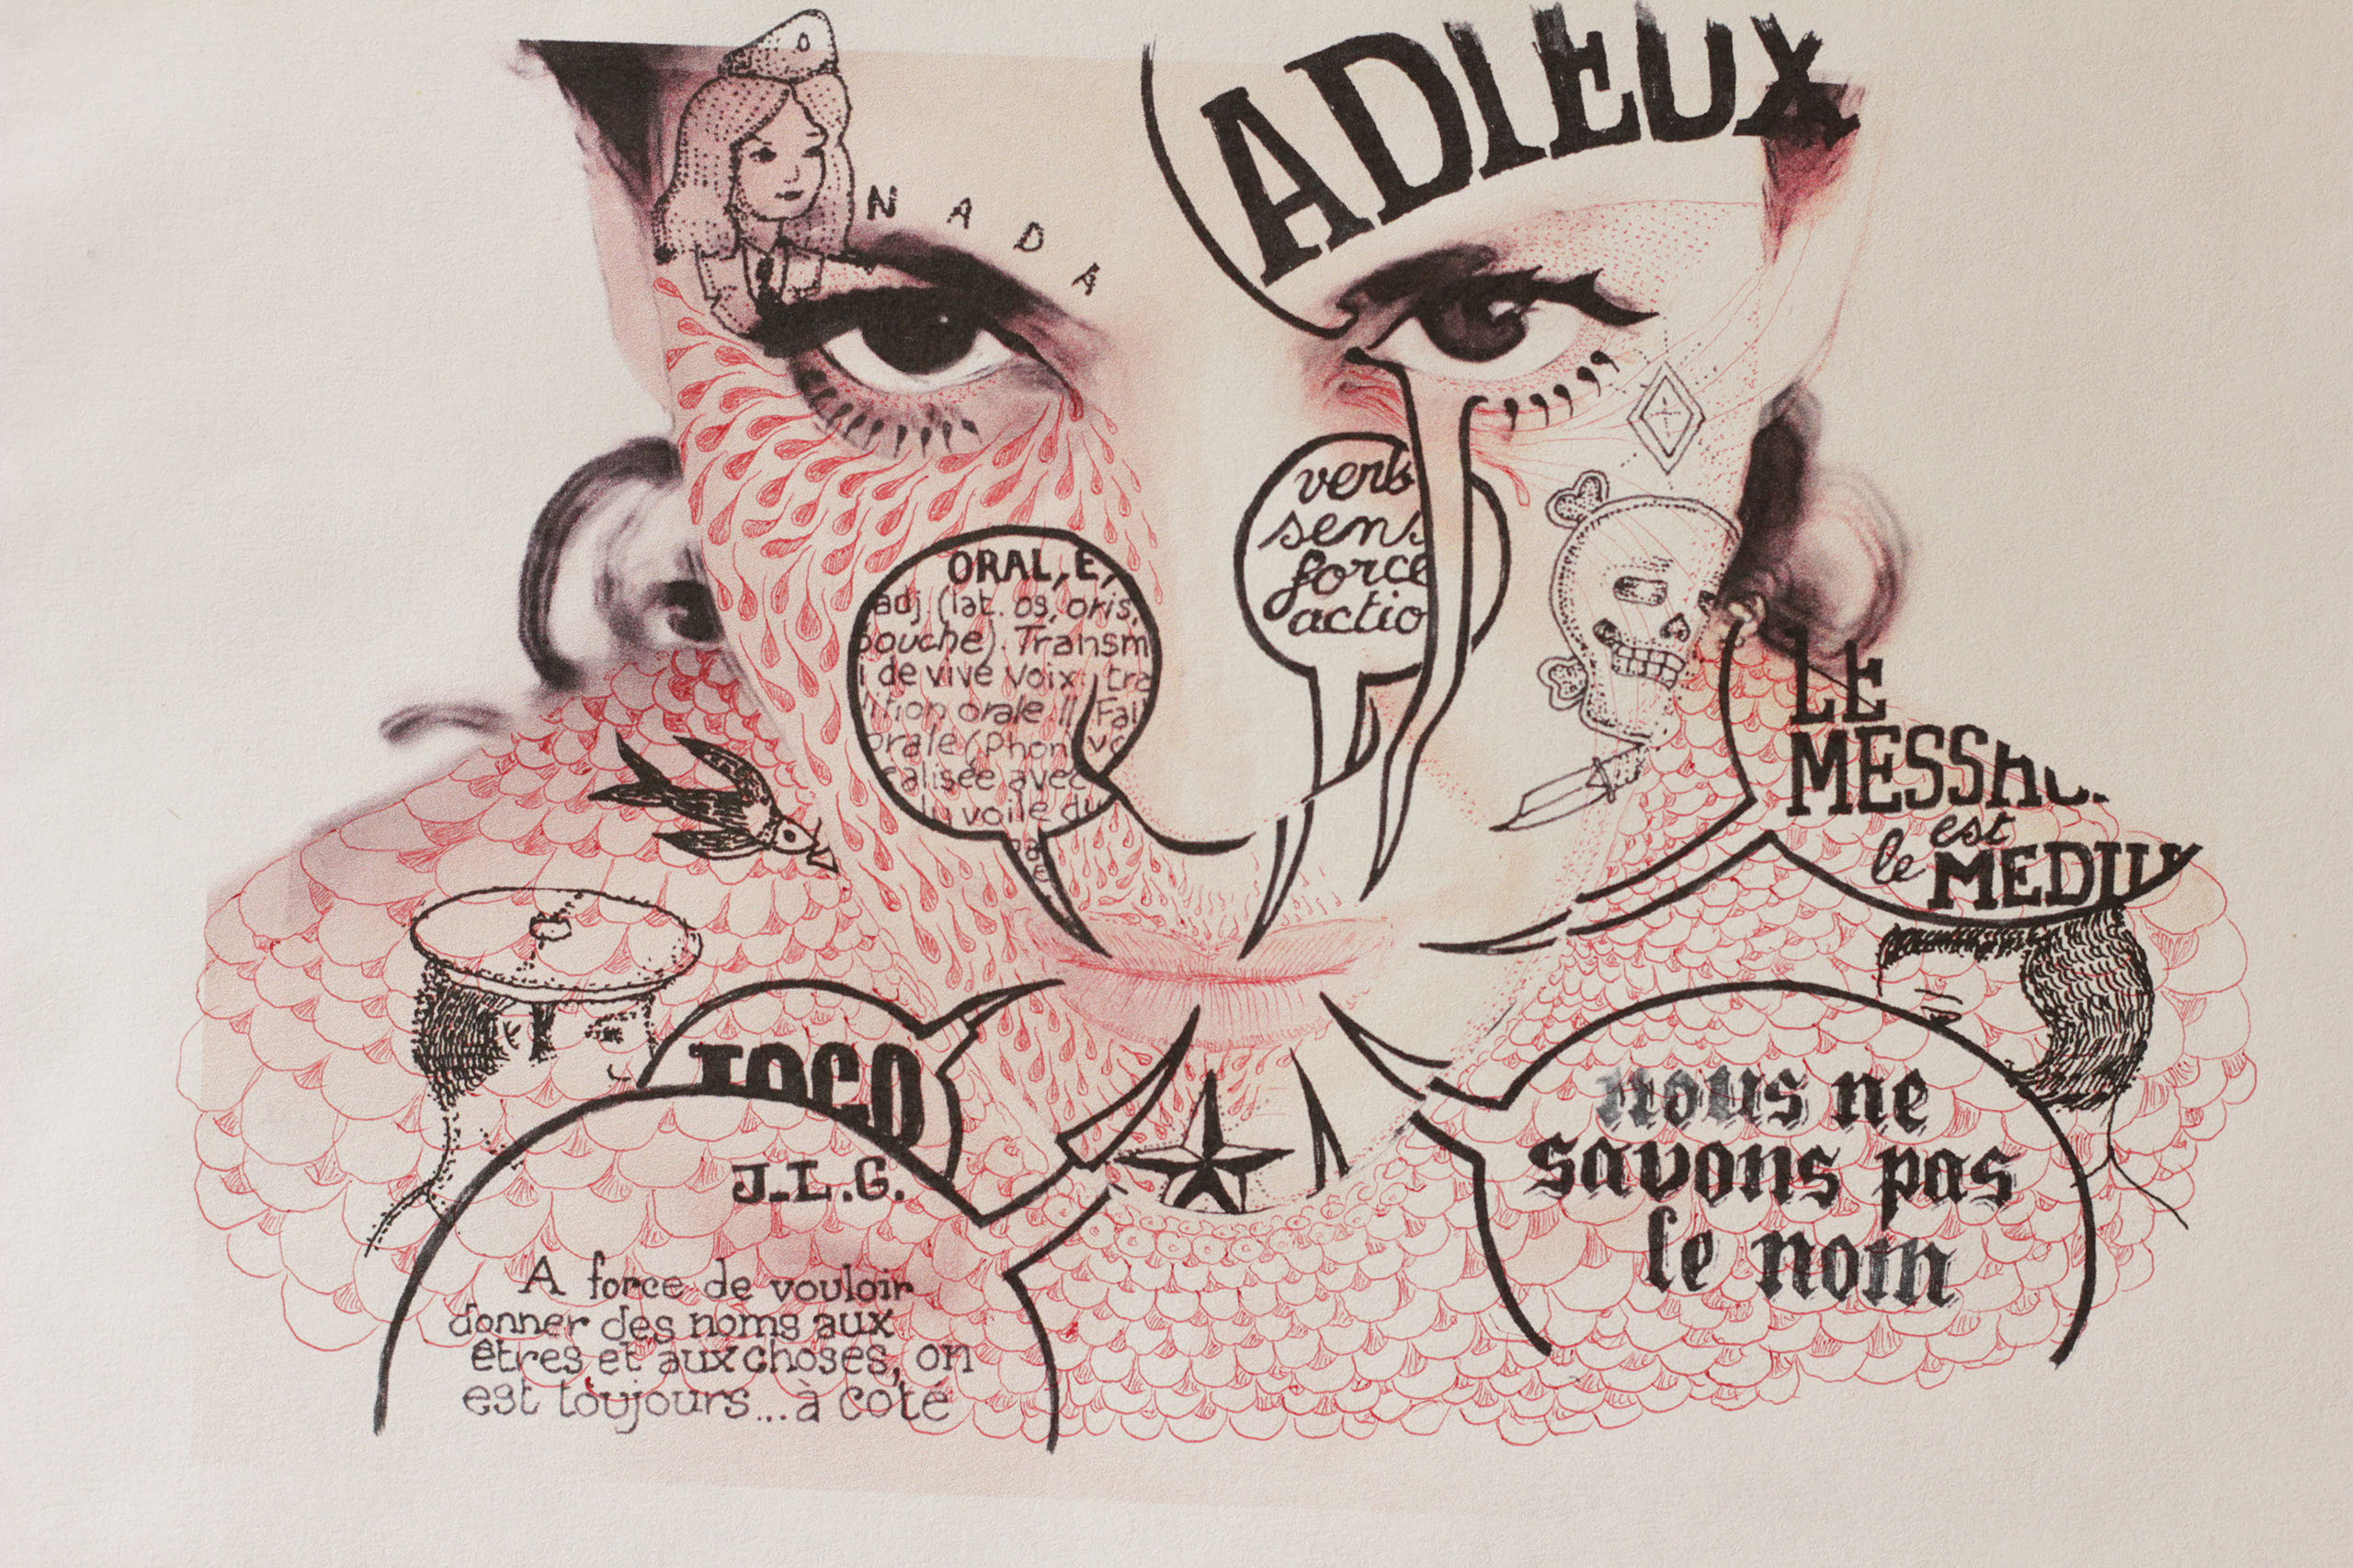 ADIEUX
NADA
verb
sens
force
actio
ORAL, E,
adj. (lat. os, oris,
bouche). Transm
i de vive voix: tra
dition orale || Fai
orale (Phon
éalisée avec
du voile du
LE
MESSA
est
le MEDIU
J-L.G.
A force de vouloir
donner des noms aux
êtres et aux choses, on
est toujours...à coté
nous ne
savons pas
le nom